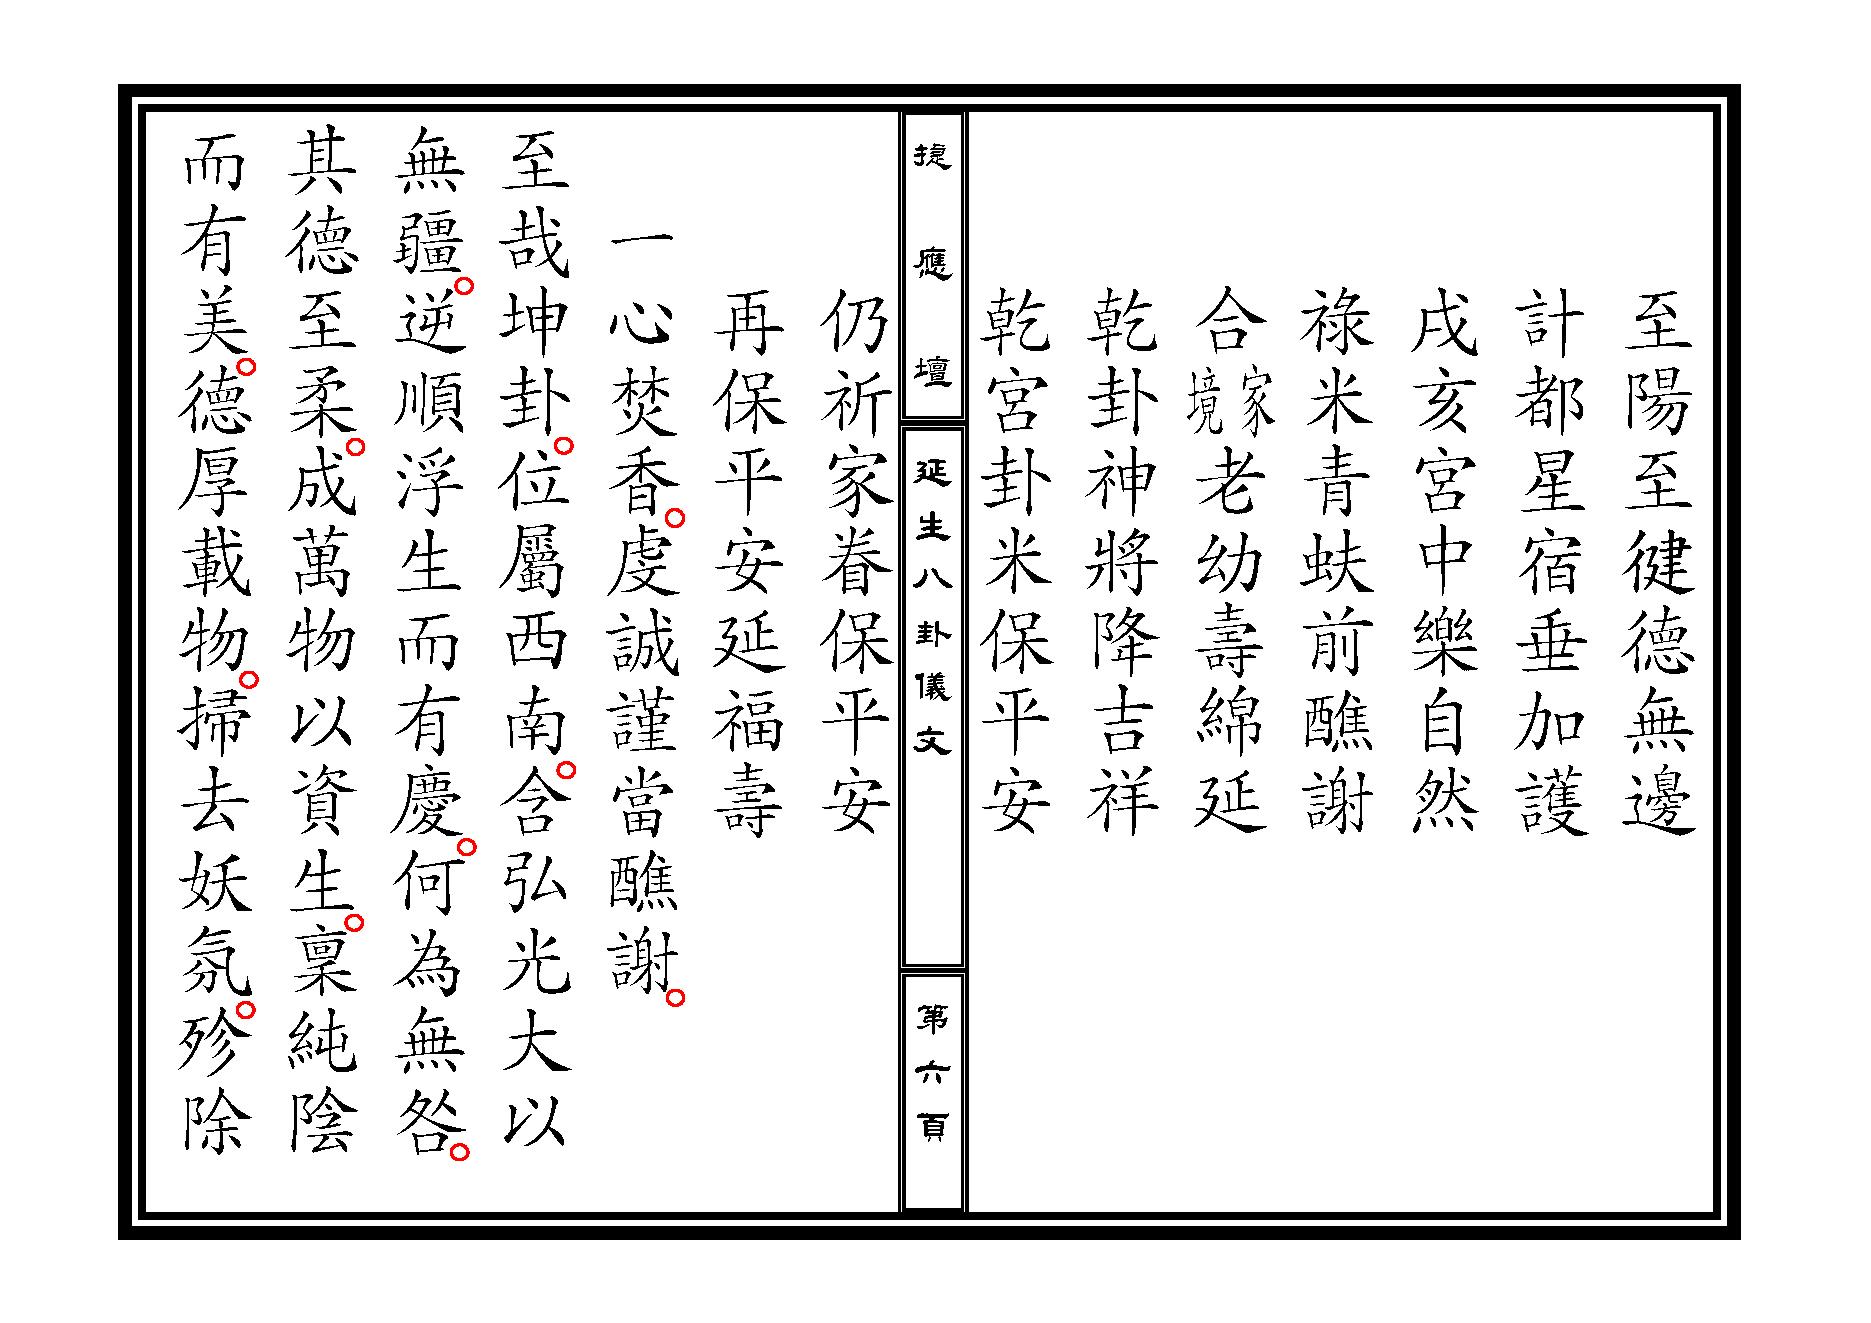 至陽至徤德無邊
計都星宿垂加護
戌亥宮中樂自然
祿米青蚨前醮謝
合家境老幼壽綿延
乾卦神將降吉祥
乾宮卦米保平安
捷應壇
延生八卦儀文
第六頁
仍祈家眷保平安
再保平安延福壽
一心焚香。虔誠謹當醮謝。
至哉坤卦。位屬西南。含弘光大以
無疆。逆順浮生而有慶。何為無咎。
其德至柔。成萬物以資生。稟純陰
而有美。德厚載物。掃去妖氛。殄除